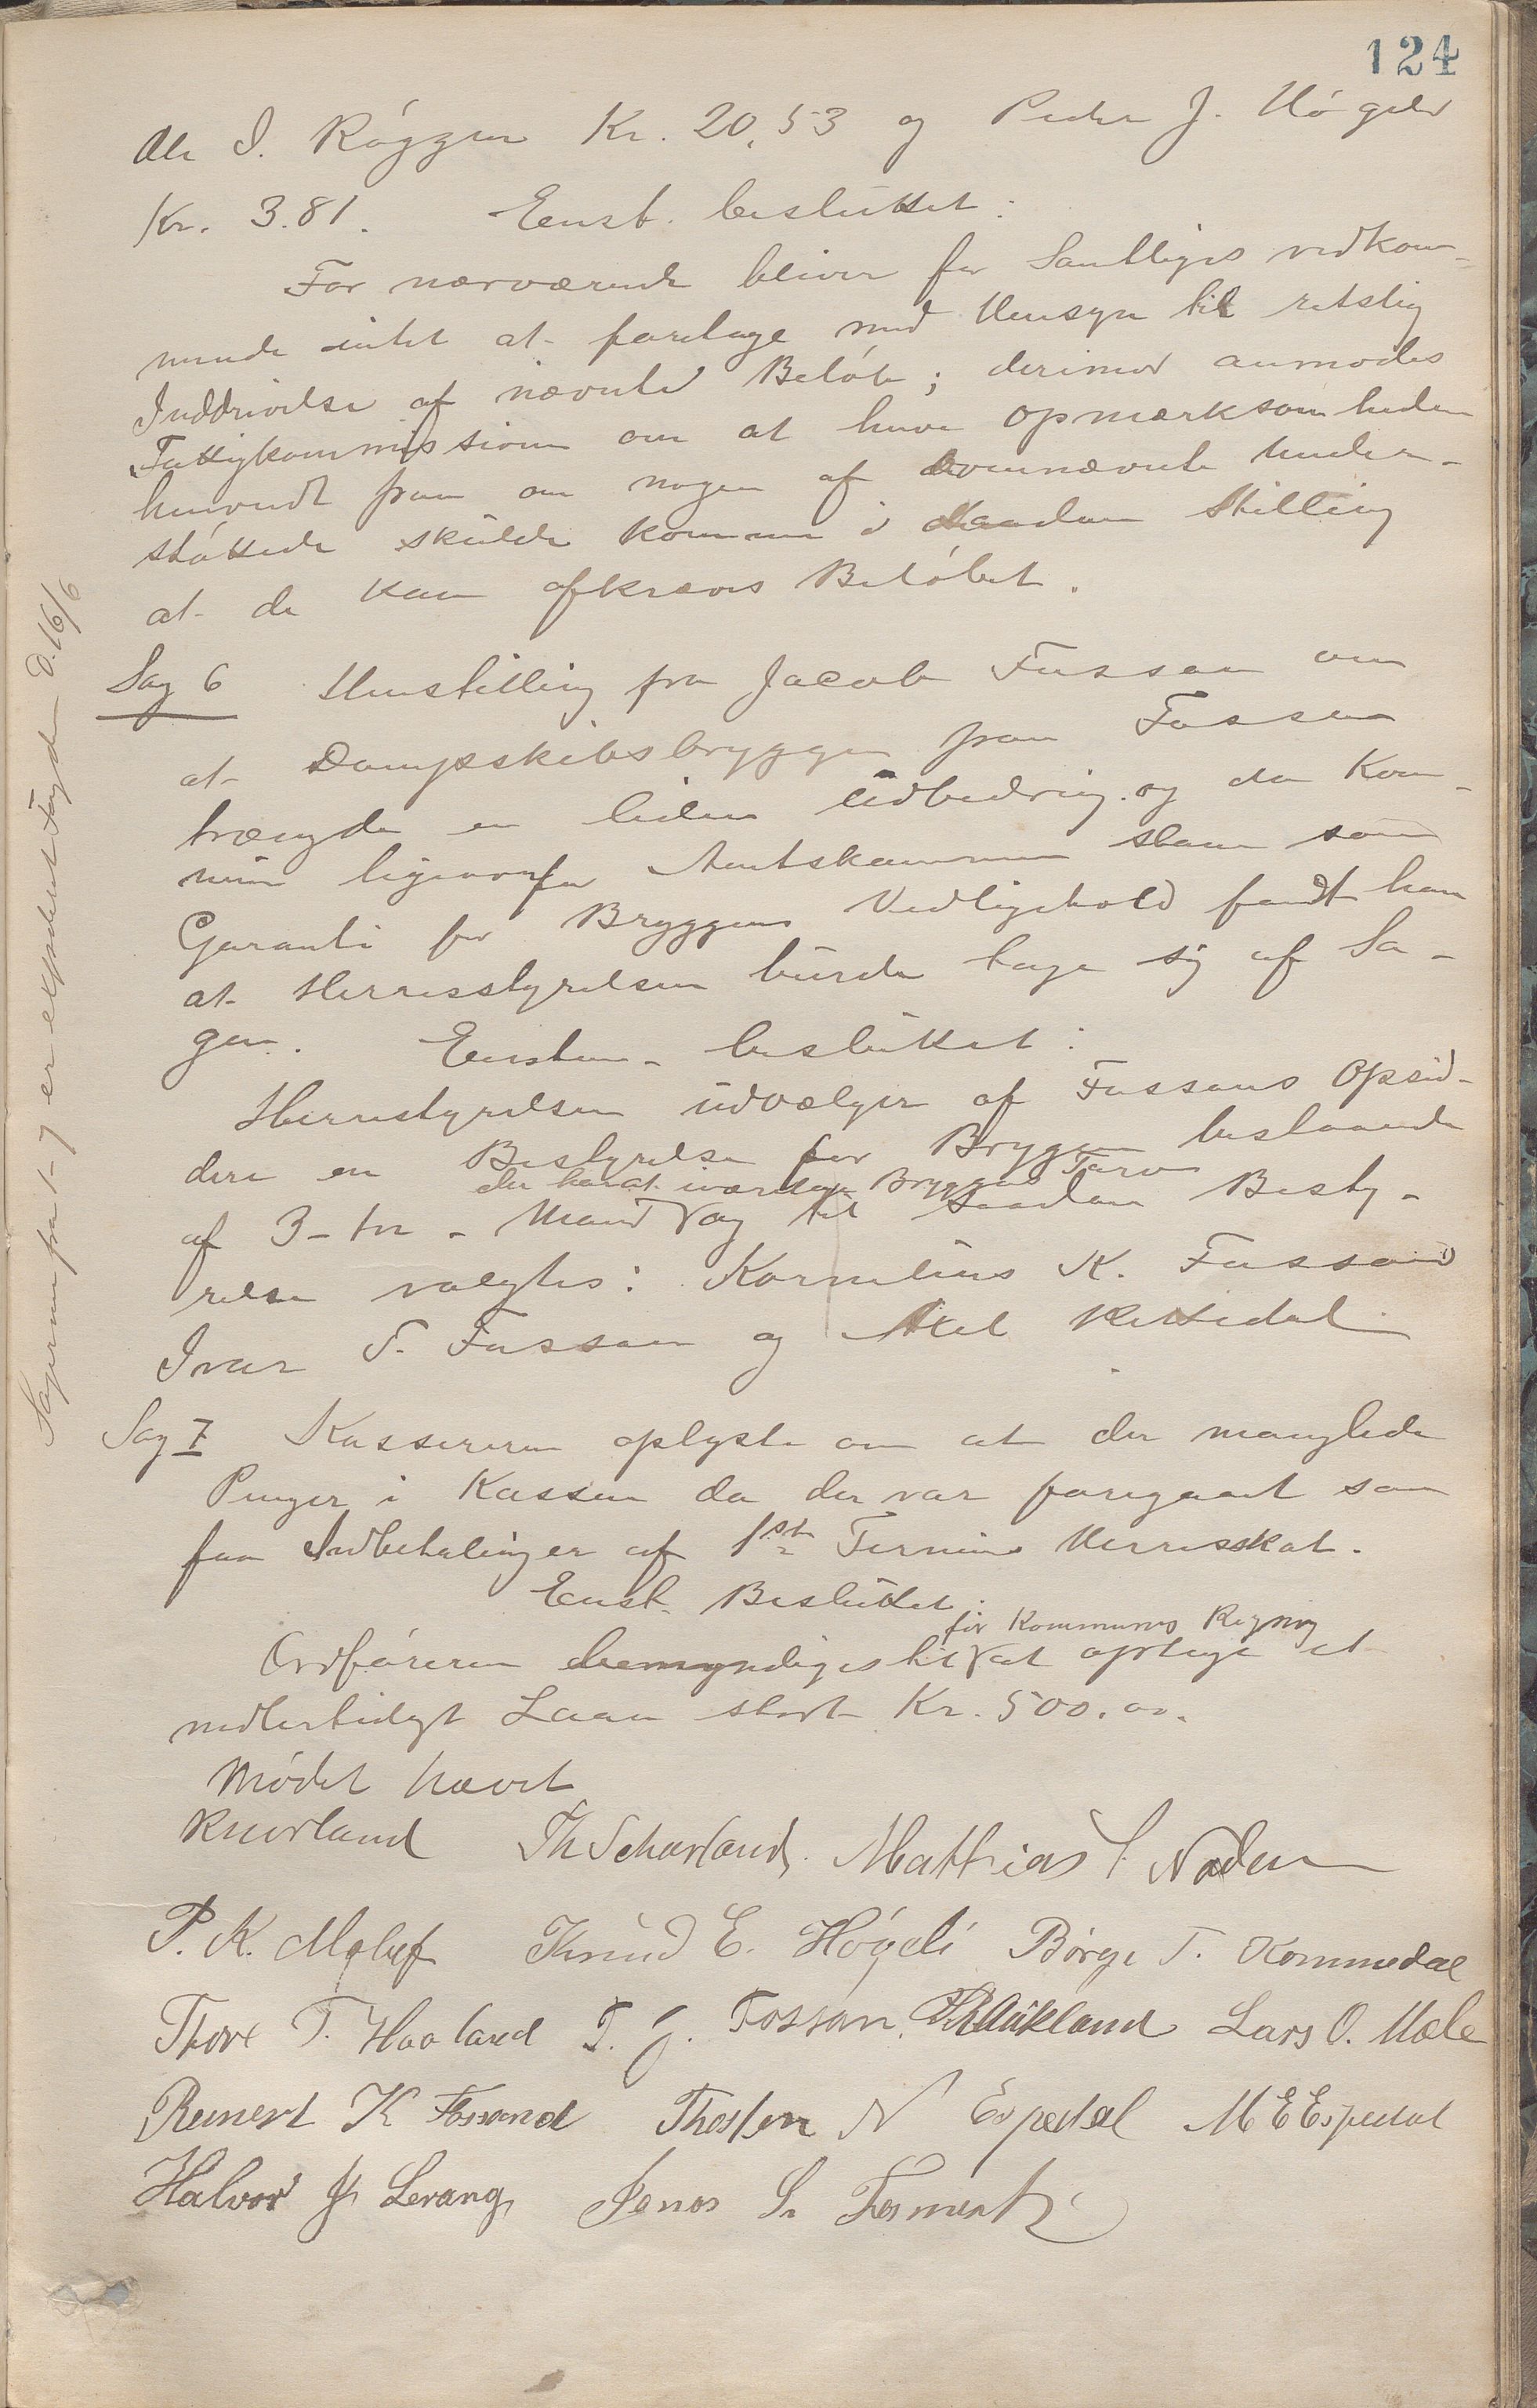 124
Ole I. Røggen Kr. 20,53 og Peder J. Høgeld
Kr. 3.81. Eenst. besluttet:
For nærværende bliver for Samtliges vedkom-
mende intet at foretage med Hensyn til retslig
Inddrivelse af nævnte Beløb; derimod anmodes
Fattigkommissionen om at have opmærksomheden
henvendt paa om nogen af ovennævnte under-
støttede skulde komme i saadan Stilling
at de kan afkræves Beløbet.
Sag 6 Henstilling fra Jacob Fossan om
at Dampskibsbryggen paa Fossan
trængde en liden Udbedring og da Kom-
mu ligeoverfor Amtskommunen staar som
Garanti for Bryggens Vedligehold fandt han
at Herredsstyrelsen burde tage sig af Sa-
gen. Eenstem. besluttet:
Herredstyrelsen udvælger af Fossans Opsid-
dere en Bestyrelse for Bryggen bestaaende
der har at ivaretage Bryggens Tarv
af 3-tre- Mand og til saadan Besty-
relse valgtes: Kornelius K. Fossan
Ivar T. Fossan og Axel Rettedal
Sag 7 Kassereren oplyste om at der manglede
Penger i Kassen da der var foregaaet saa
faa Indbetalinger af 1ste Termins Herredsskat.
Eenst. Besluttet:
for Kommunes Regning
Ordføreren bemyndiges til at optage et
midlertidigt Laan stort Kr. 500.00.
Mødet hævet
Knorland Th Scharland. Mathias S Nøden
P. K. Meling Knud E. Høyli Børge T. Kommedal
Thore T. Haaland T. J. Fossan. Aukland Lars O. Mæle
Reinert K Fossand Thosten N Espedal M E Espedal
Halvor J. Levang, Jonas L.
Sagerne fra 1-7 er expedert Fogden D. 16/6